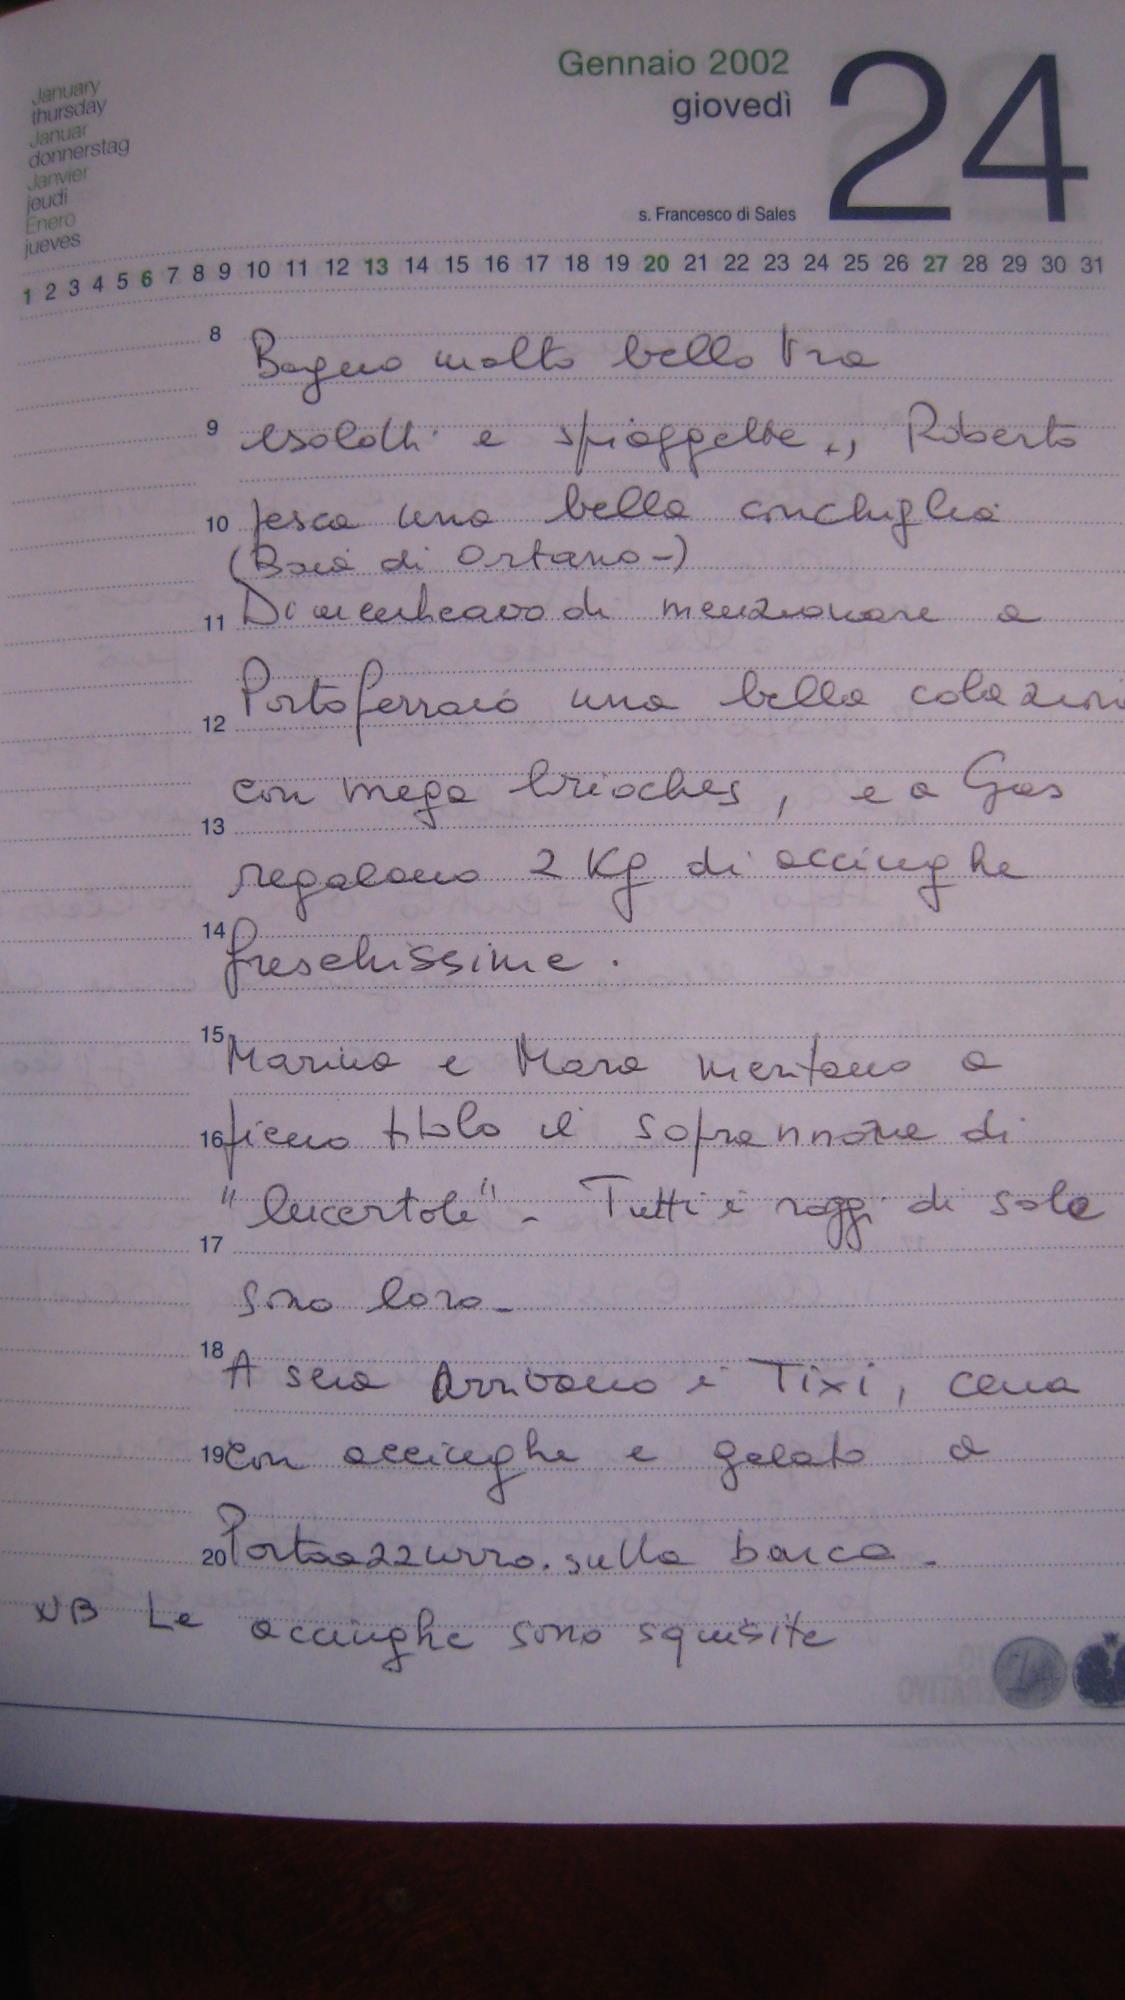 Gennaio 2002
giovedì
24
January
thursday
Januar
donnerstag
Janvier
jeudi
Enero
jueves
s. Francesco di Sales
1 2 3 4 5 6 7 8 9 10 11 12 13 14 15 16 17 18 19 20 21 22 23 24 25 26 27 28 29 30 31
8 Bagno molto bello tra
9 isolotti e spiaggette, Roberto
10 pesca una bella conchiglia
(Baia di Ortano-)
11 Dimenticavo di menzionare a
Portoferraio una bella colazione
12
con mega brioches, e a Gas
13
regalano 2 Kg di acciughe
14 freschissime.
15 Marina e Mara meritano a
16 pieno titolo il soprannome di
"lucertole" - Tutti i raggi di sole
17
sono loro-
18 A sera Arrivano i Tixi, cena
19 con acciughe e gelato a
20 Portoazzurro. sulla barca-
NB Le acciughe sono squisite